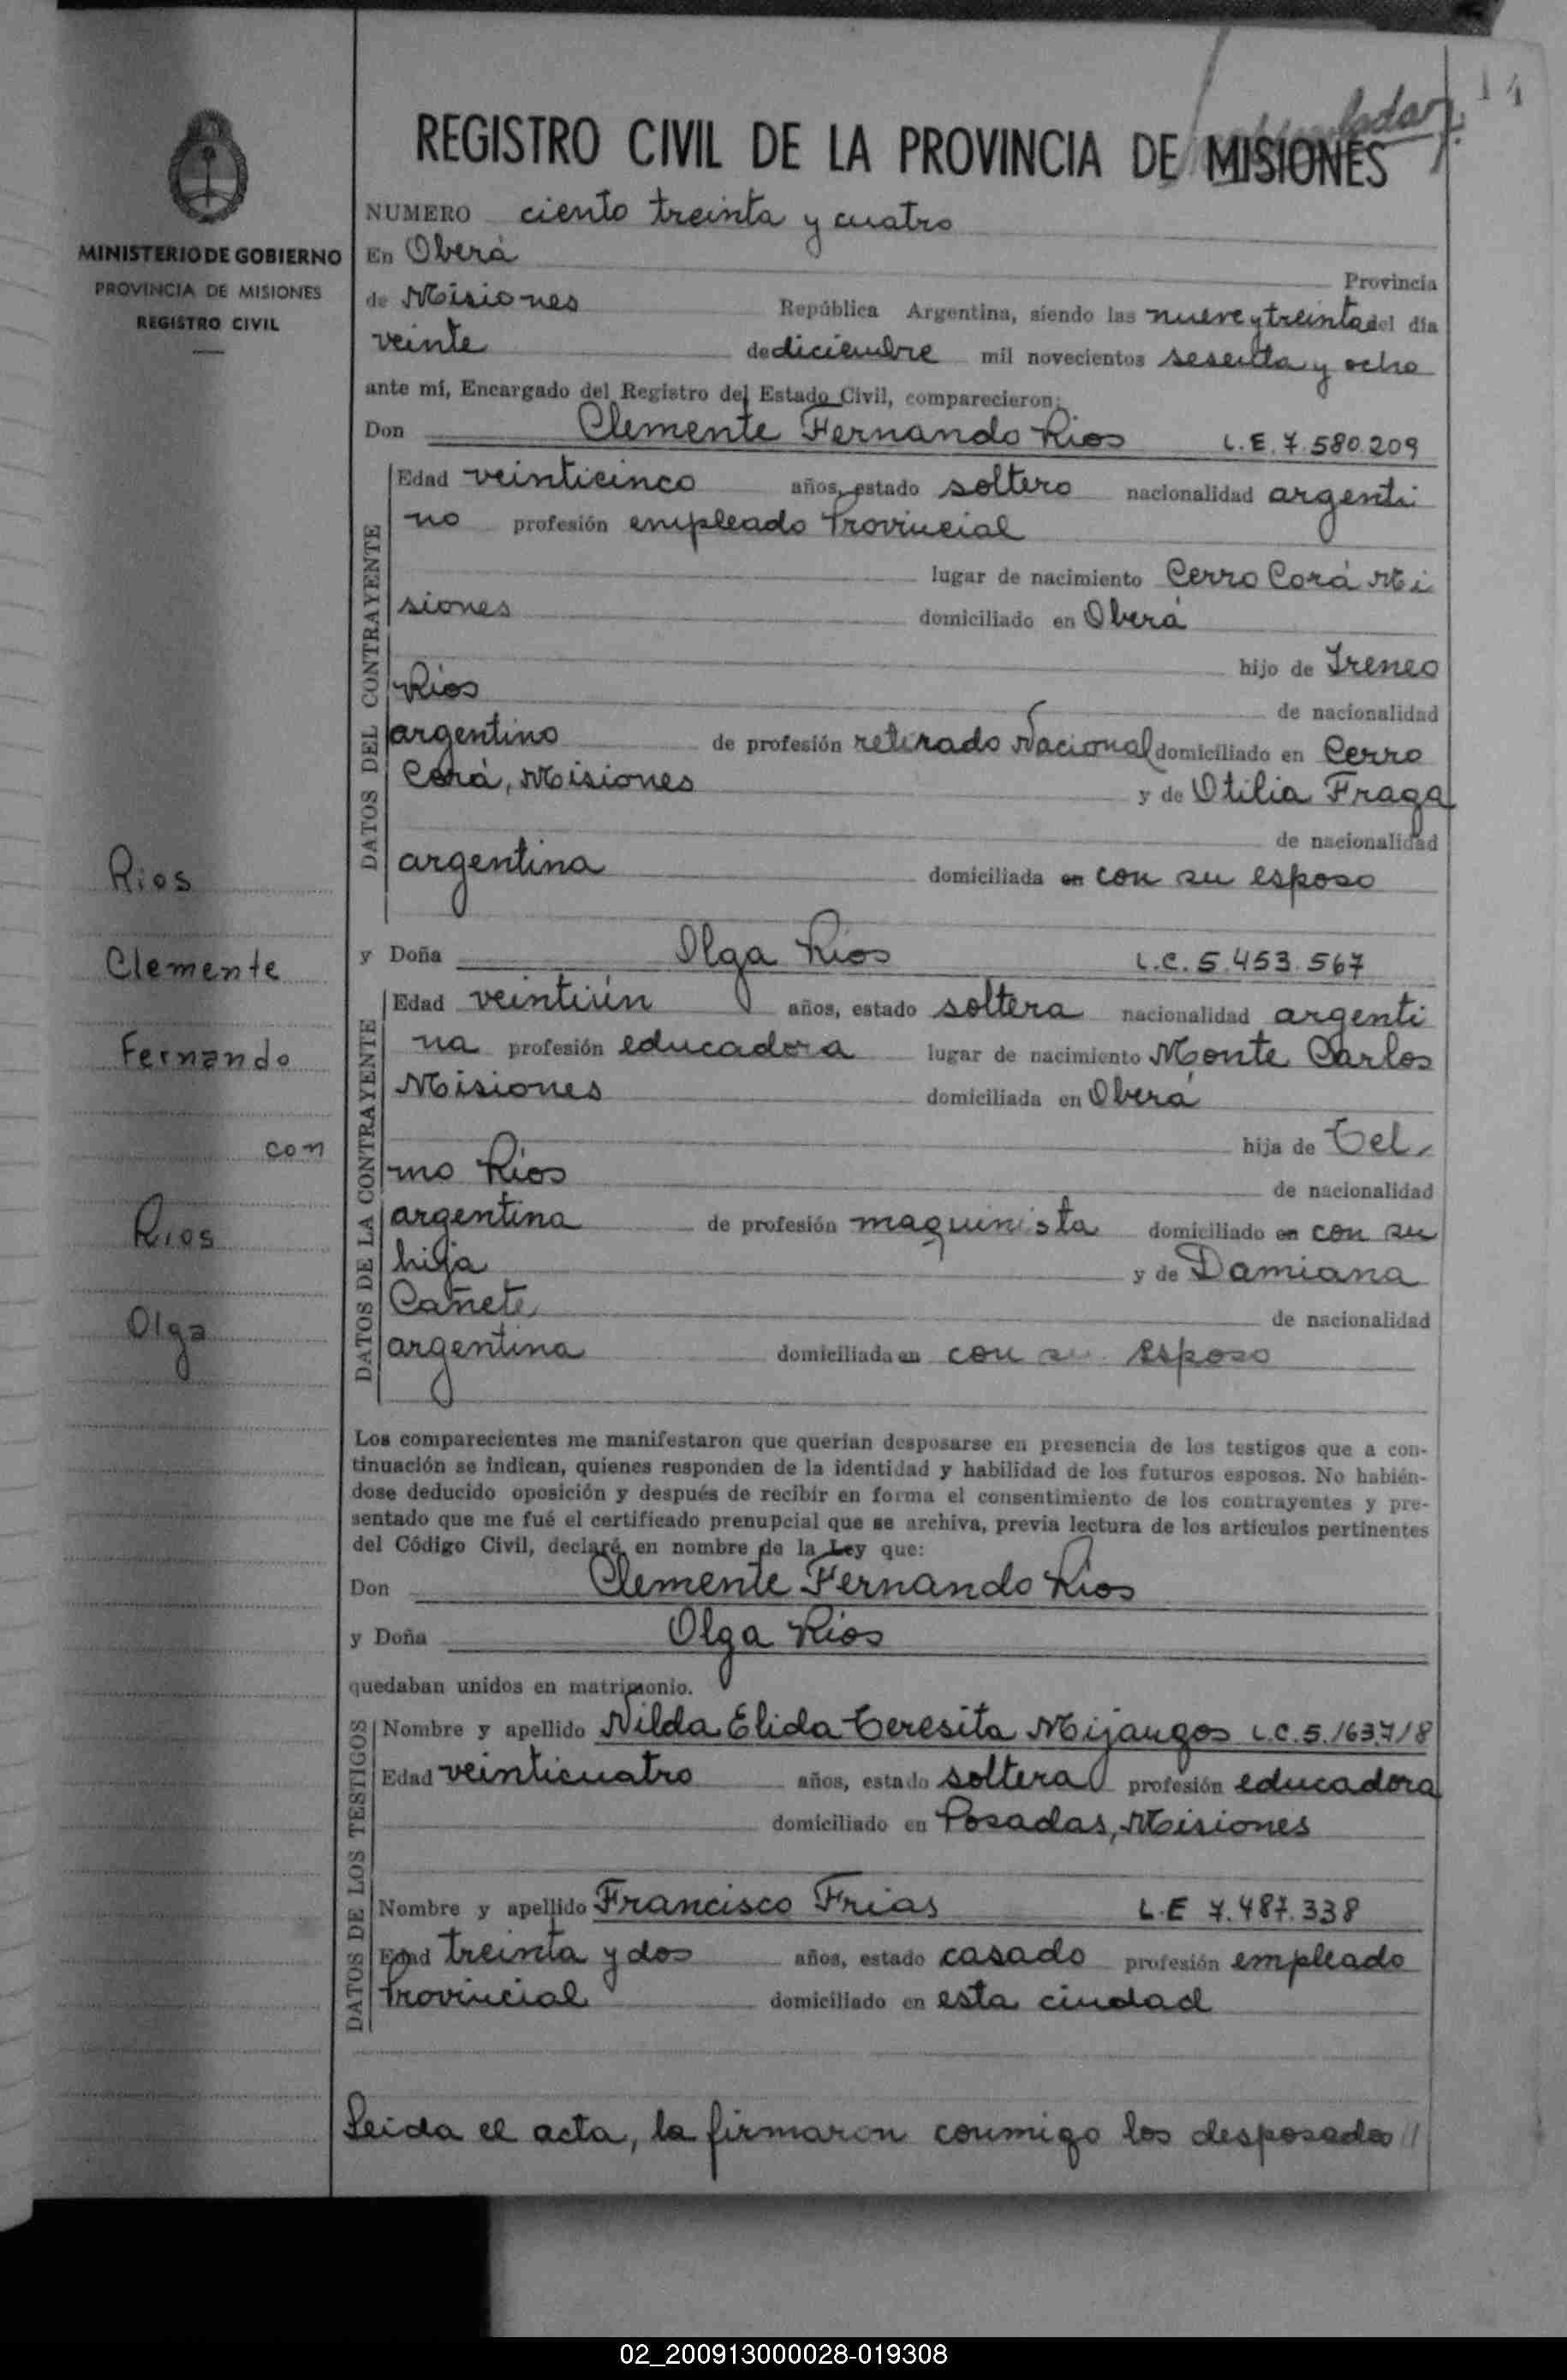 14
REGISTRO CIVIL DE LA PROVINCIA DE MISIONES
MINISTERIO DE GOBIERNO
PROVINCIA DE MISIONES
REGISTRO CIVIL
NUMERO ciento treinta y cuatro
En Oberá Provincia
de Misiones República Argentina, siendo las nueve y treinta del día
veinte de diciembre mil novecientos sesenta y ocho
ante mí, Encargado del Registro del Estado Civil, comparecieron:
Don Clemente Fernando Rios L.E. 7.580.209
DATOS DEL CONTRAYENTE
Edad veinticinco años, estado soltero nacionalidad argenti
no profesión empleado Provincial
lugar de nacimiento Cerro Corá Mi
siones domiciliado en Oberá
hijo de Ireneo
Rios de nacionalidad
argentino de profesión retirado Nacional domiciliado en Cerro
Corá, Misiones y de Otilia Fraga
de nacionalidad
argentina domiciliada en con su esposo
Rios
Clemente
Fernando
con
Rios
Olga
y Doña Olga Rios L.C. 5.453.567
DATOS DE LA CONTRAYENTE
Edad veintiún años, estado soltera nacionalidad argenti
na profesión educadora lugar de nacimiento Monte Carlos
Misiones domiciliada en Oberá
hija de Tel-
mo Rios de nacionalidad
argentina de profesión maquinista domiciliado en con su
hija y de Damiana
Cañete de nacionalidad
argentina domiciliada en con su esposo
Los comparecientes me manifestaron que querían desposarse en presencia de los testigos que a con-
tinuación se indican, quienes responden de la identidad y habilidad de los futuros esposos. No habién-
dose deducido oposición y después de recibir en forma el consentimiento de los contrayentes y pre-
sentado que me fué el certificado prenupcial que se archiva, previa lectura de los artículos pertinentes
del Código Civil, declaré, en nombre de la Ley que:
Don Clemente Fernando Rios
y Doña Olga Rios
quedaban unidos en matrimonio.
DATOS DE LOS TESTIGOS
Nombre y apellido Nilda Elida Teresita Mijangos L.C. 5.163.718
Edad veinticuatro años, estado soltera profesión educadora
domiciliado en Posadas, Misiones
Nombre y apellido Francisco Frias L.E 7.487.338
Edad treinta y dos años, estado casado profesión empleado
Provincial domiciliado en esta ciudad
Leida el acta, la firmaron conmigo los desposados //
02_200913000028-019308